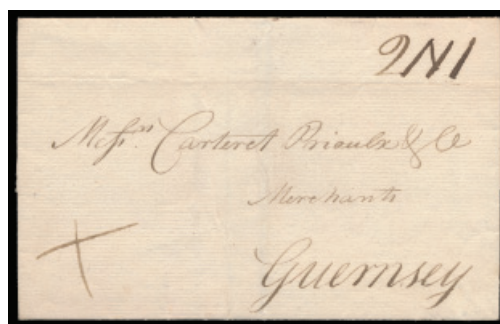 2N1
Messrs. Carteret Priaulx & Co
Merchants
Guernsey